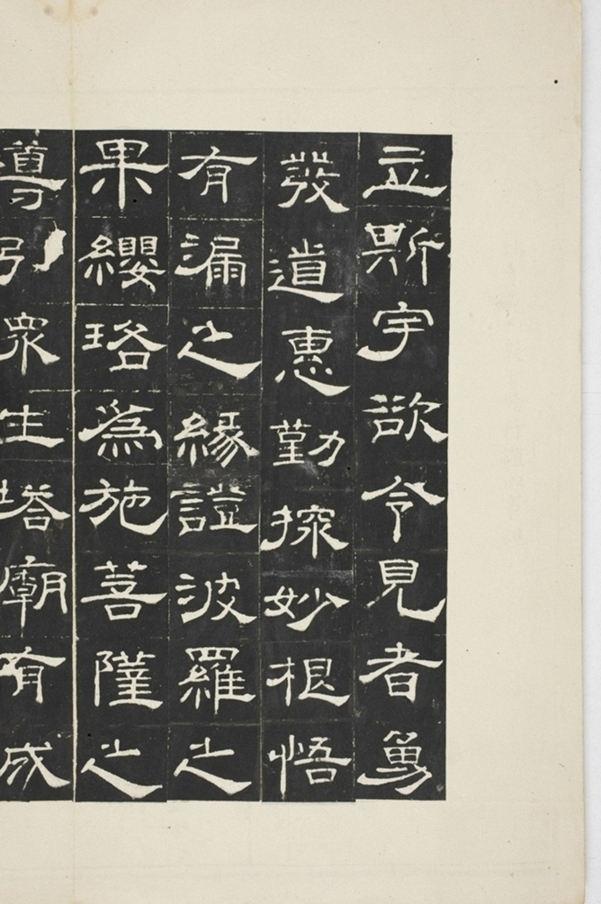 立斯宇欲令見者勇
發道惠勤探妙根悟
有漏之緣證波羅之
果纓珞為施菩薩之
導引眾生塔廟有成